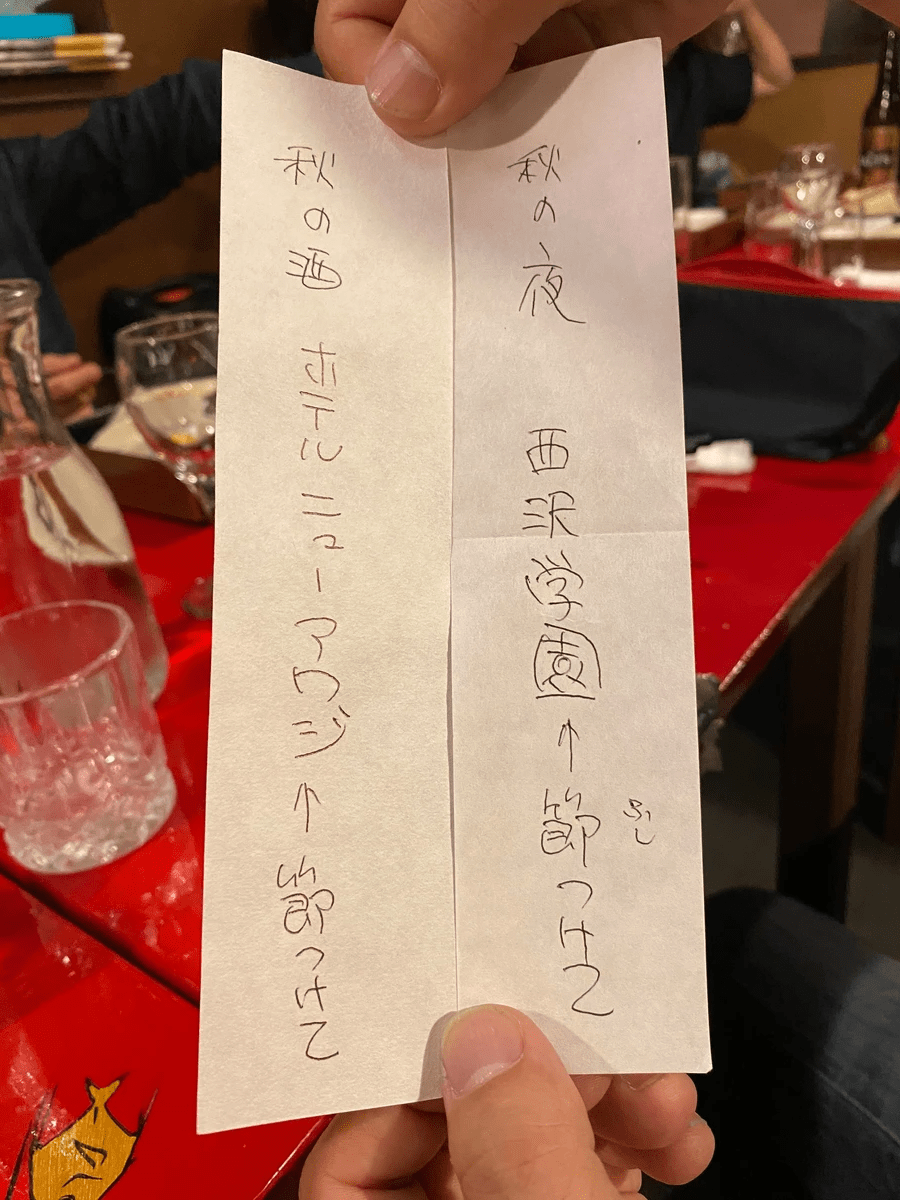 秋の夜 西沢学園↑節つけて
ふし
秋の酒 ホテルニューアワジ↑節つけて